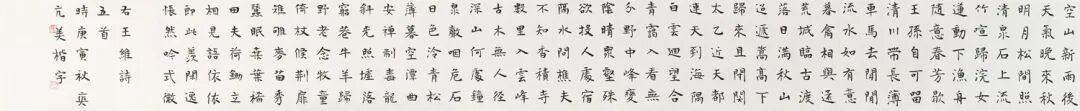 空山新雨後
天氣晚來秋
明月松間照
清泉石上流
竹喧歸浣女
蓮動下漁舟
隨意春芳歇
王孫自可留
清川帶長薄
車馬去閒閒
流水如有意
暮禽相與還
荒城臨古渡
落日滿秋山
迢遞嵩高下
歸來且閉關
太乙近天都
連山到海隅
白雲迴望合
青靄入看無
分野中峰變
陰晴眾壑殊
欲投人處宿
隔水問樵夫
不知香積寺
數里入雲峰
古木無人徑
深山何處鐘
泉聲咽危石
日色冷青松
薄暮空潭曲
安禪制毒龍
斜光照墟落
窮巷牛羊歸
野老念牧童
倚杖候荊扉
雉雊麥苗秀
蠶眠桑葉稀
田夫荷鋤立
相見語依依
即此羨閒逸
悵然吟式微
右王維詩
五首
時庚寅秋奠
亢美楷字